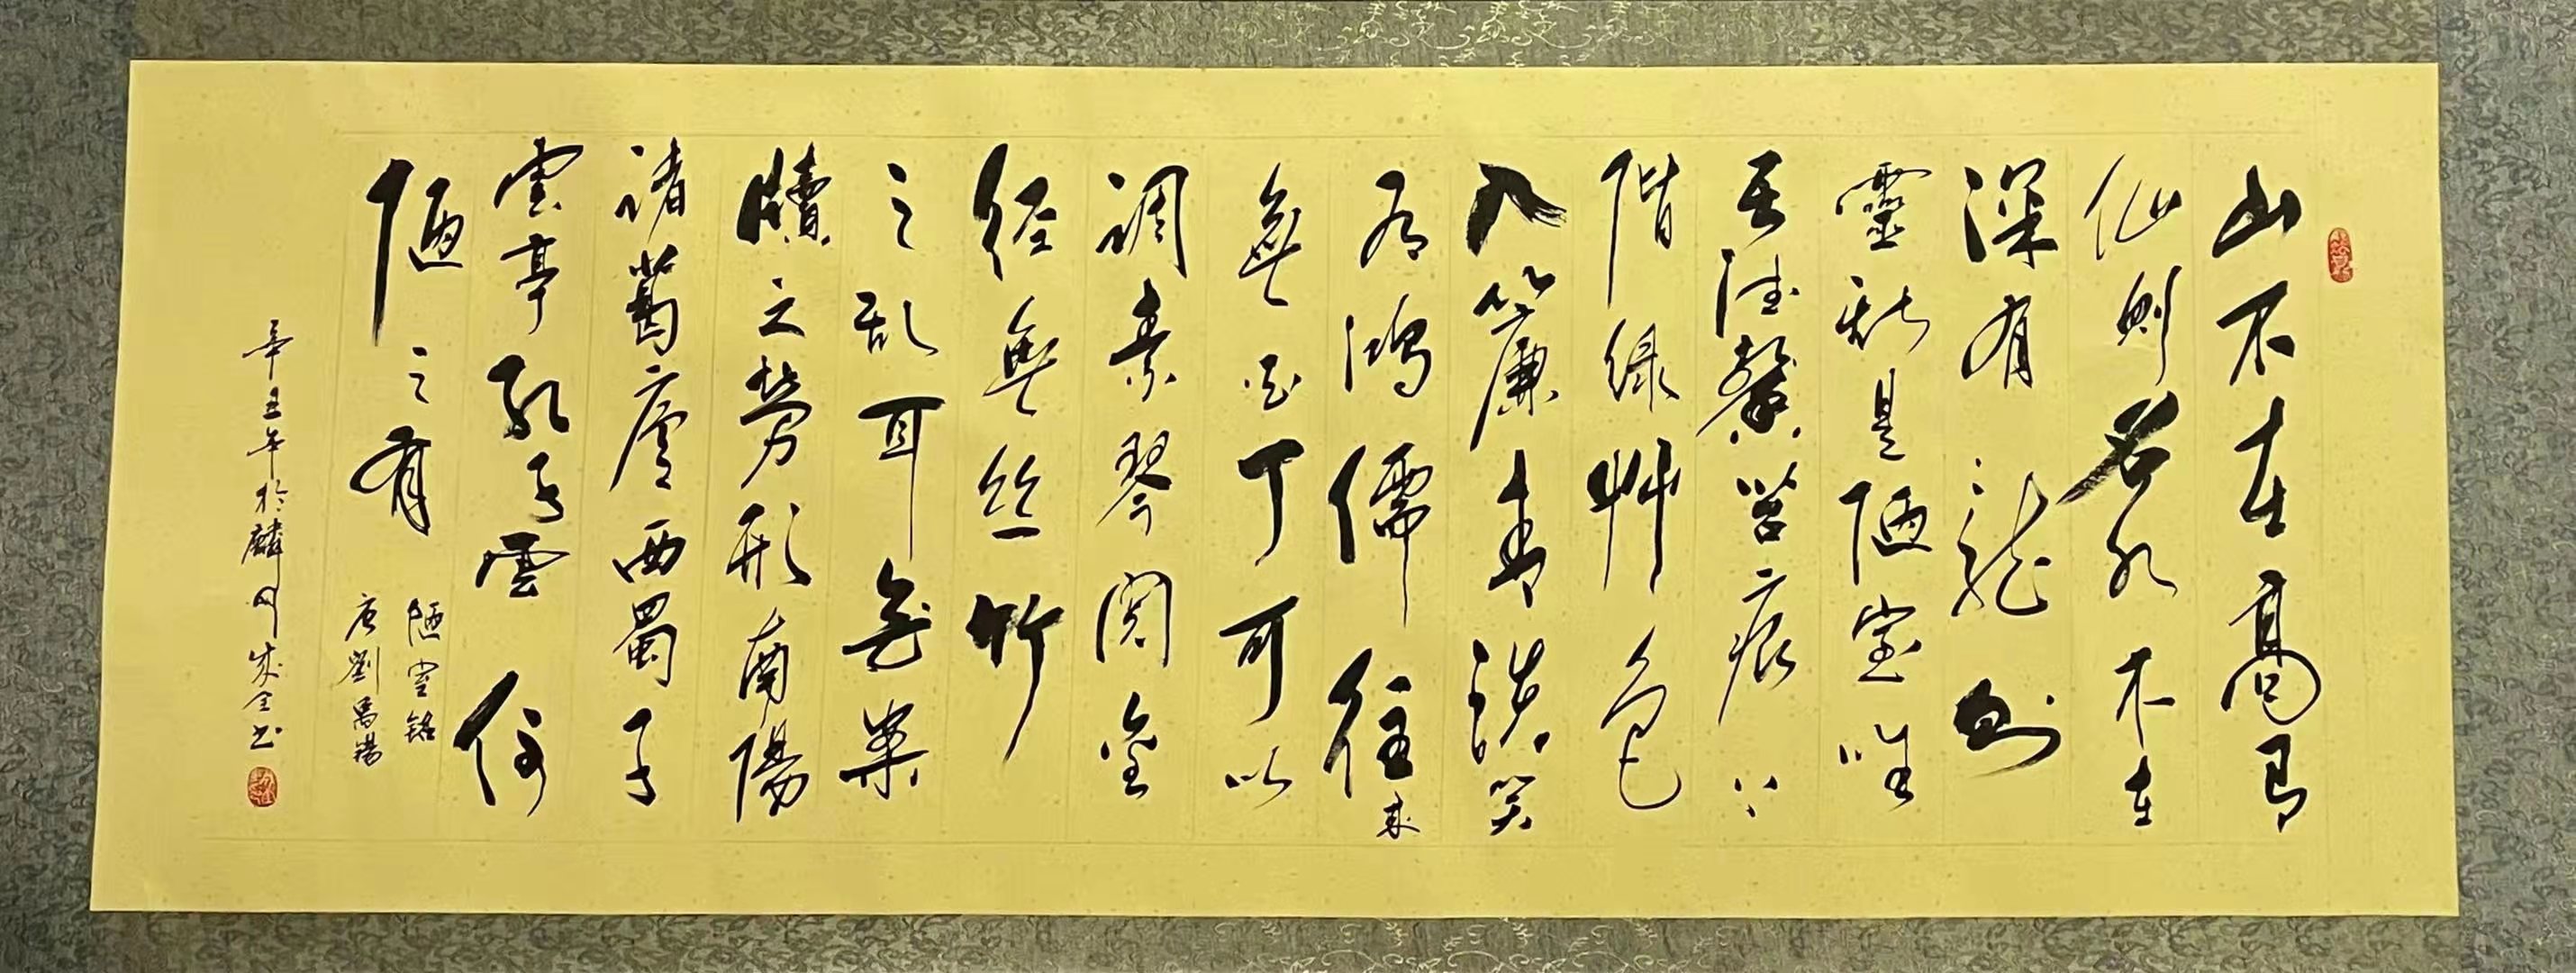 山不在高有
仙則名水不在
深有龍則
靈斯是陋室唯
吾德馨苔痕上
階緑艸色
入簾青談笑
有鴻儒往来
無白丁可以
調素琴閱金
经無丝竹
之乱耳無案
牘之勞形南陽
諸葛廬西蜀子
雲亭孔子雲何
陋之有
陋室銘
唐劉禹錫
辛丑年於麟州成全书